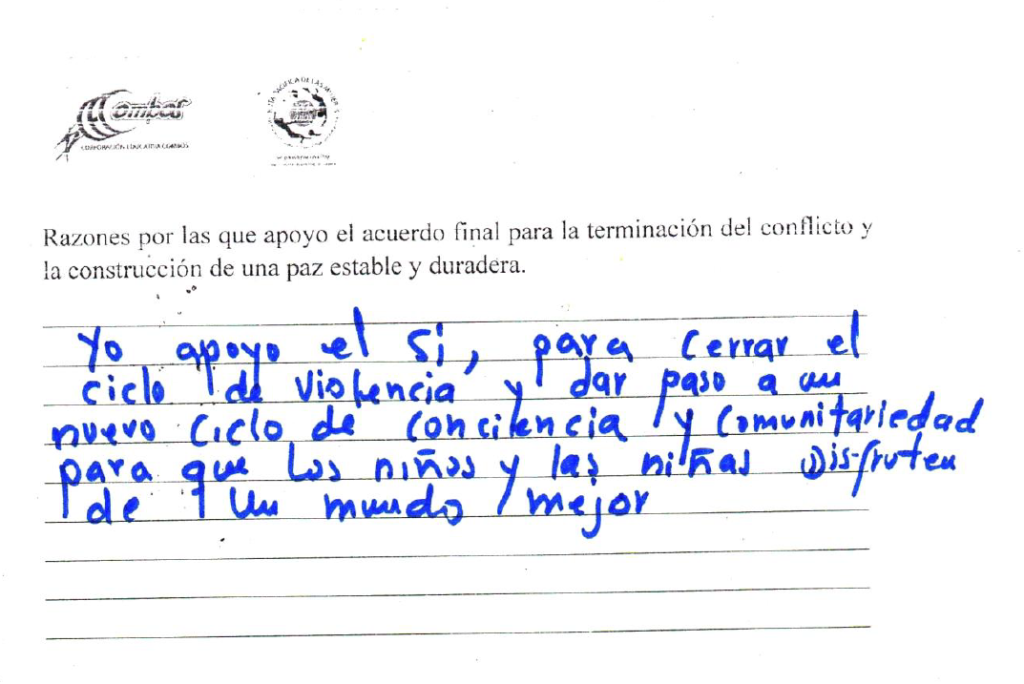 Combos
CORPORACIÓN EDUCATIVA COMBOS
Razones por las que apoyo el acuerdo final para la terminación del conflicto y
la construcción de una paz estable y duradera.
Yo apoyo el Si, para cerrar el
ciclo de violencia y dar paso a un
nuevo ciclo de concilencia y comunitariedad
para que los niños y las niñas Disfruten
de un mundo mejor